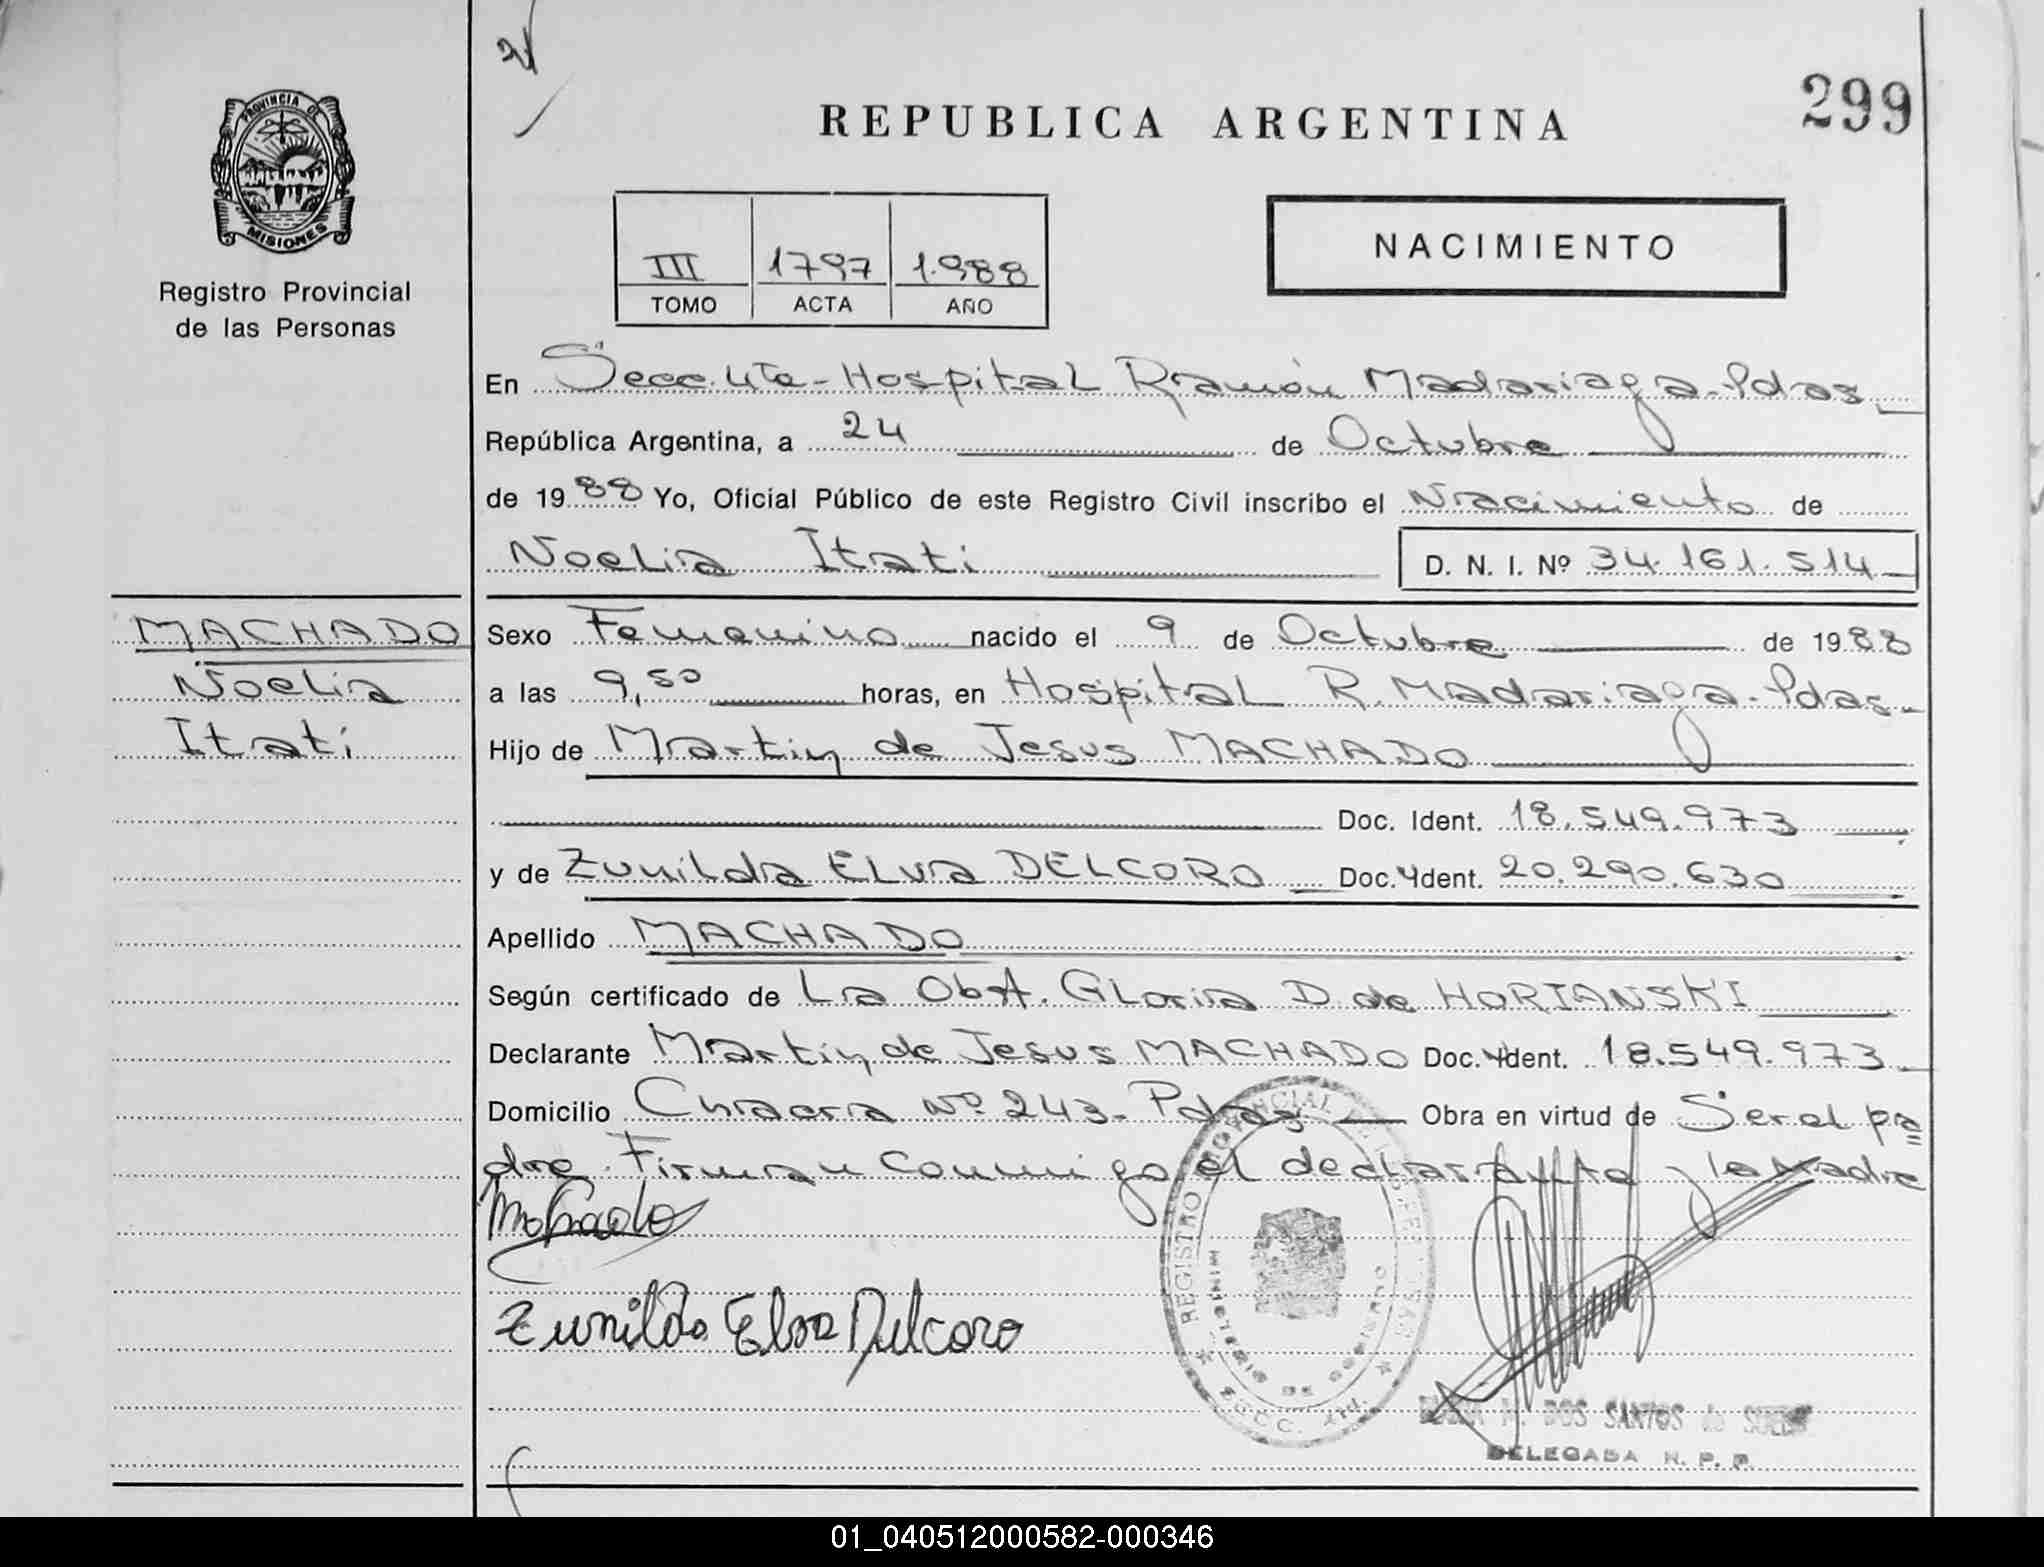 299
REPUBLICA ARGENTINA
PROVINCIA DE
MISIONES
Registro Provincial
de las Personas
III 1797 1.988
TOMO ACTA AÑO
NACIMIENTO
En Secc. 4ta - Hospital Ramón Madariaga - Pdas
República Argentina, a 24 de Octubre
de 1988 Yo, Oficial Público de este Registro Civil inscribo el Nacimiento de
Noelia Itati D. N. I. Nº 34.161.514
MACHADO
Noelia
Itatí
Sexo Femenino nacido el 9 de Octubre de 1988
a las 9,50 horas, en Hospital R. Madariaga - Pdas
Hijo de Martin de Jesus MACHADO
Doc. Ident. 18.549.973
y de Zunilda ELva DELCORO Doc. Ident. 20.290.630
Apellido MACHADO
Según certificado de La Obst. Gloria D. de HORIANSKI
Declarante Martin de Jesus MACHADO Doc. Ident. 18.549.973
Domicilio Chacra Nº 243 - Pdas Obra en virtud de Ser el pa=
dre. Firman conmigo el declarante y la Madre
Machado
Zunilda Elva Delcoro
REGISTRO PROVINCIAL DE LAS PERSONAS
MINISTERIO DE GOBIERNO
SECC. 4ta.
DOS SANTOS de
DELEGADA R. P. P.
01_040512000582-000346